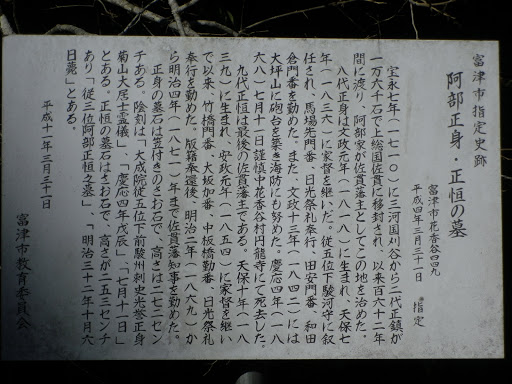 富津市指定史跡
阿部正身・正恒の墓
富津市花香谷四四九
平成四年三月三十一日 指定
宝永七年(一七一〇)に三河国刈谷から二代正鎮が
一万六千石で上総国佐貫に移封され、以来百六十二年
間に渡り、阿部家が佐貫藩主としてこの地を治めた。
八代正身は文政元年(一八一八)に生まれ、天保七
年(一八三六)に家督を継いだ。従五位下駿河守に叙
任され、馬場先門番、日光祭礼奉行、田安門番、和田
倉門番を勤めた。また、文政十三年(一八四二)には
大坪山に砲台を築き海防にも努めた。慶応四年(一八
六八)七月十一日謹慎中花香谷村円龍寺にて死去した。
九代正恒は最後の佐貫藩主である。天保十年(一八
三九)に生まれ、安政元年(一八五四)に家督を継い
で以来、竹橋門番、大坂加番、中坂橋勤番、日光祭礼
奉行を勤めた。版籍奉還後、明治二年(一八六九)か
ら明治四年(一八七一)年まで佐貫藩知事を勤めた。
正身の墓石は笠付きのさお石で、高さは二七二セン
チある。陰刻は「大成院従五位下前駿州刺史光誉正身
菊山大居士霊儀」、「慶応四年戊辰」、「七月十一日」
とある。正恒の墓石はさお石で、高さが二五三センチ
あり「従三位阿部正恒之墓」、「明治三十二年十月六
日薨」とある。
平成十一年三月三十一日
富津市教育委員会